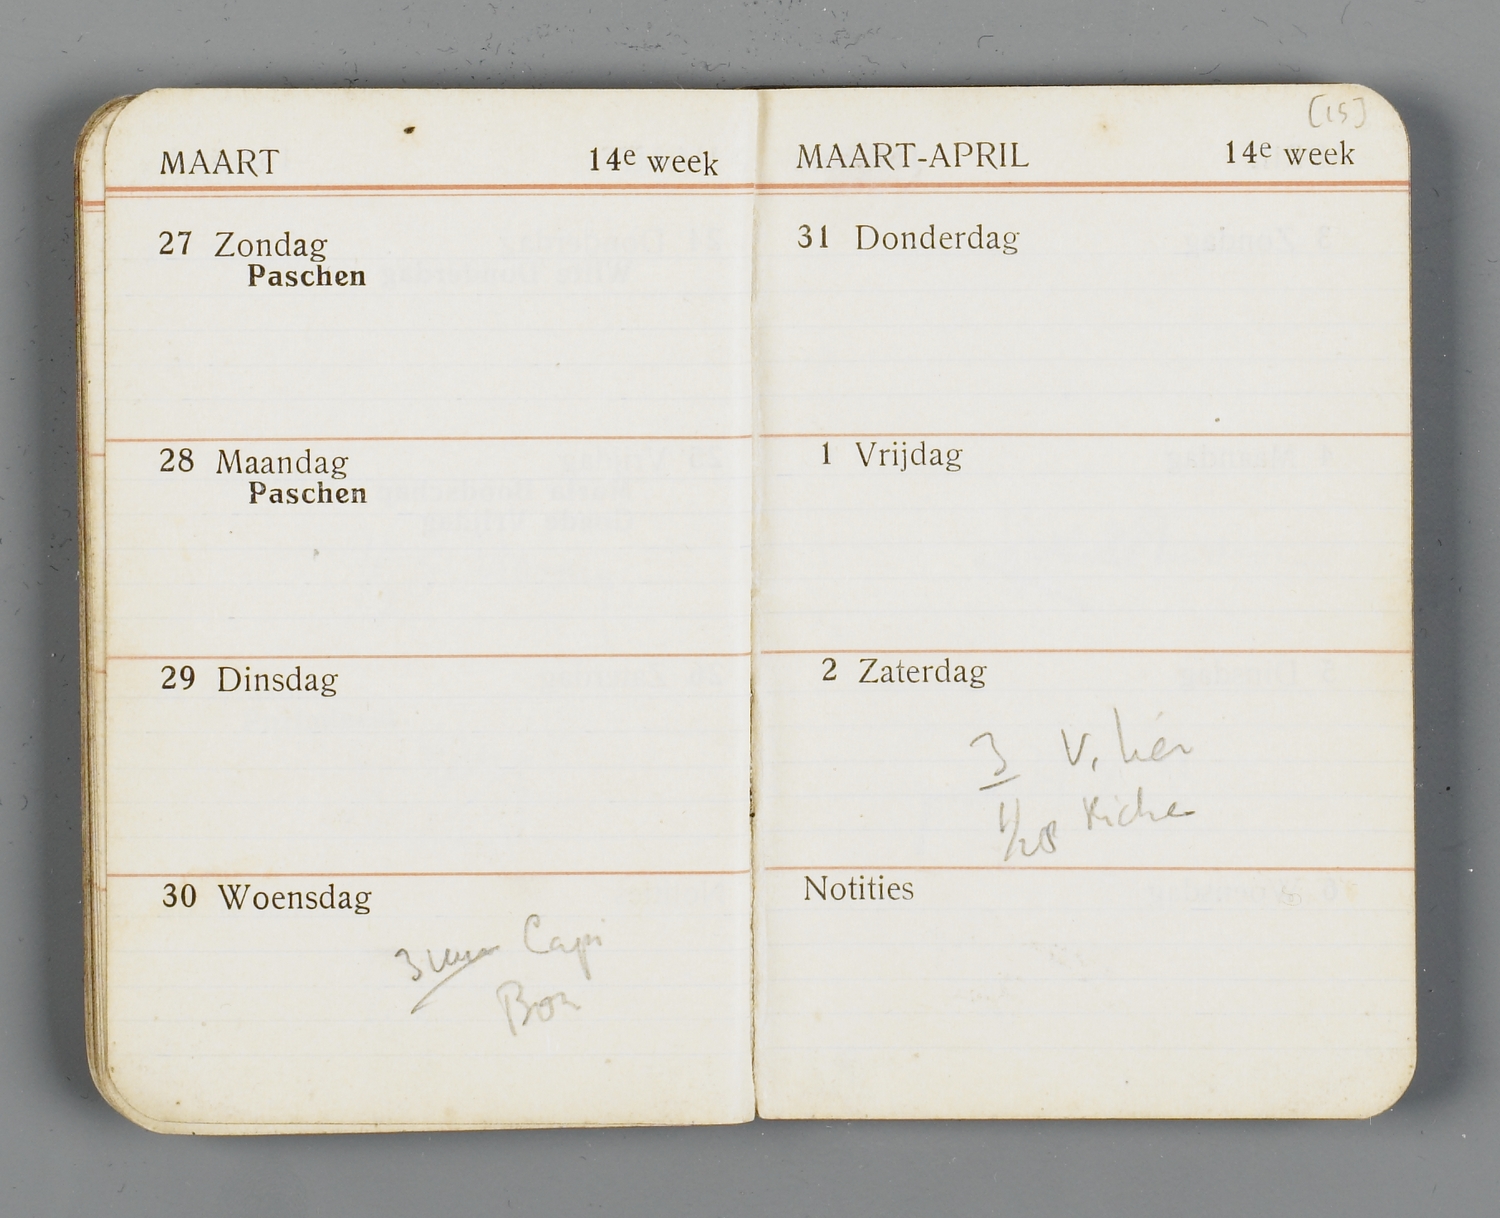 MAART 14e week
27 Zondag
Paschen
28 Maandag
Paschen
29 Dinsdag
30 Woensdag
3 uur Capi
Bon
[15]
MAART-APRIL 14e week
31 Donderdag
1 Vrijdag
2 Zaterdag
3 V.
1/28
Notities